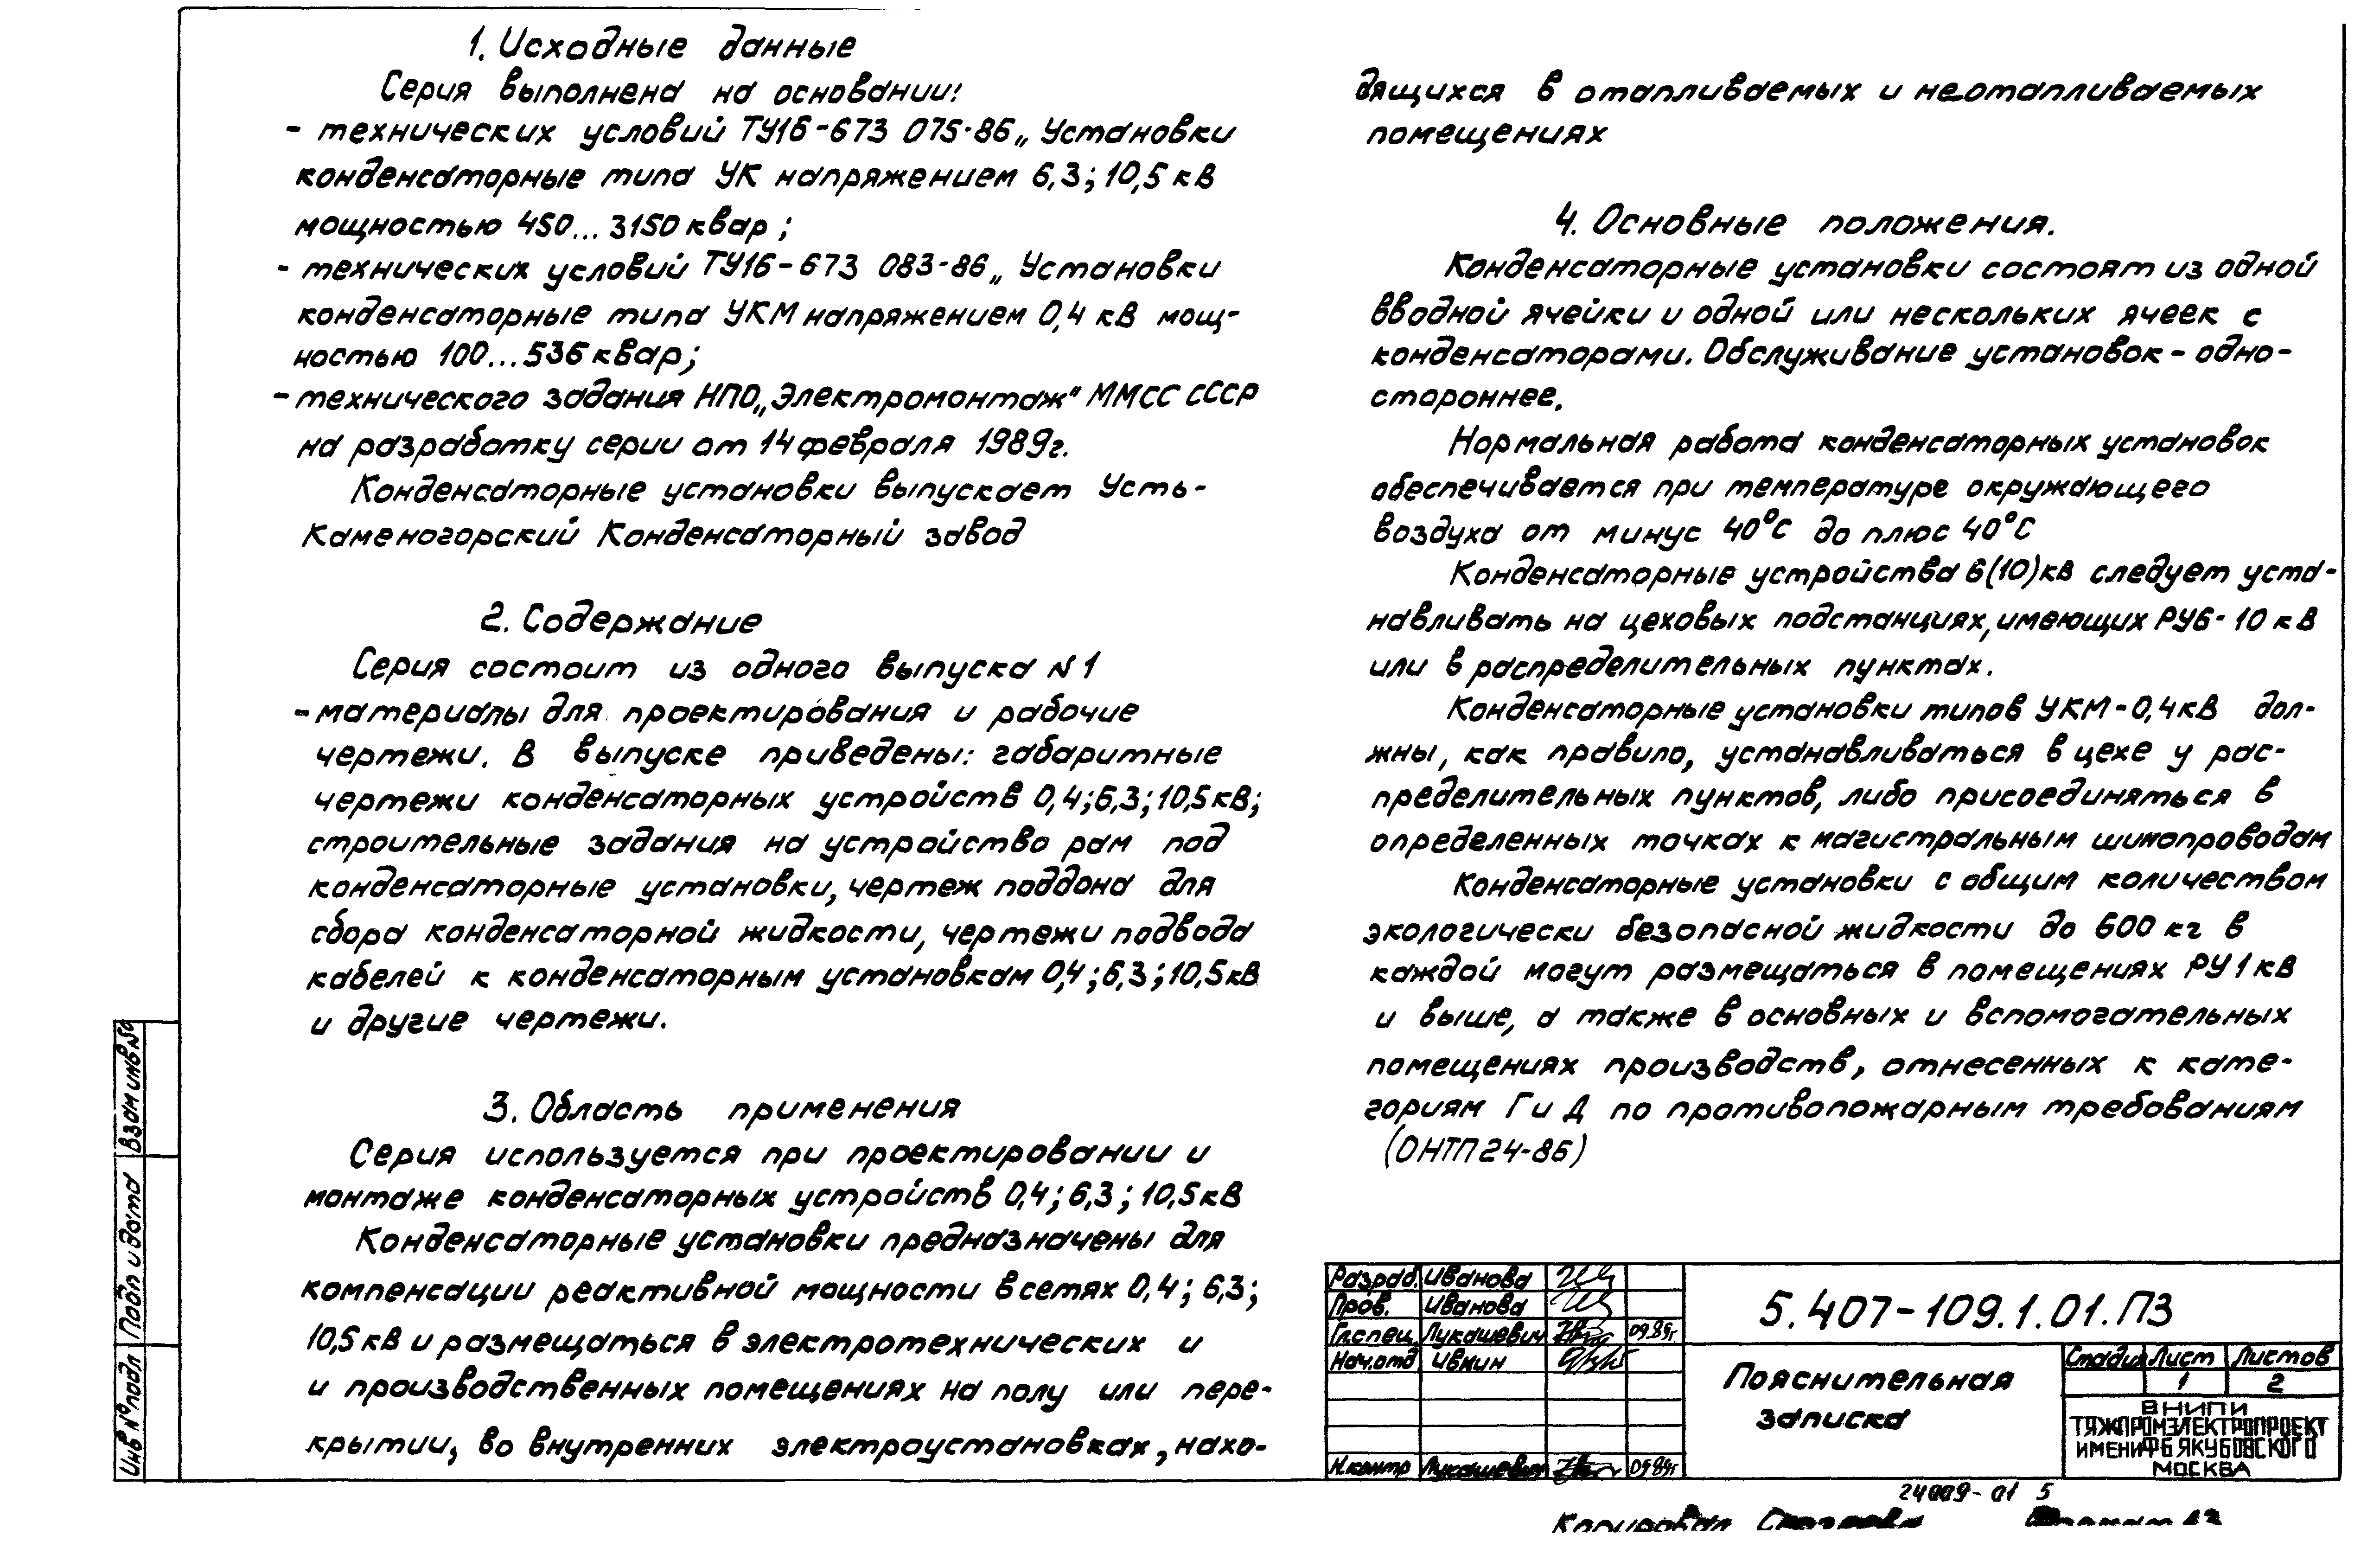 1. Исходные данные
Серия выполнена на основании:
- технических условий ТУ16-673 075-86 „Установки
конденсаторные типа УК напряжением 6,3; 10,5 кВ
мощностью 450... 3150 квар;
- технических условий ТУ16-673 083-86 „Установки
конденсаторные типа УКМ напряжением 0,4 кВ мощ-
ностью 100...536 квар;
- технического задания НПО „Электромонтаж" ММСС СССР
на разработку серии от 14 февраля 1989г.
Конденсаторные установки выпускает Усть-
Каменогорский Конденсаторный завод
2. Содержание
Серия состоит из одного выпуска N 1
- материалы для проектирования и рабочие
чертежи. В выпуске приведены: габаритные
чертежи конденсаторных устройств 0,4; 6,3; 10,5 кВ;
строительные задания на устройство рам под
конденсаторные установки, чертеж поддона для
сбора конденсаторной жидкости, чертежи подвода
кабелей к конденсаторным установкам 0,4; 6,3; 10,5 кВ
и другие чертежи.
3. Область применения
Серия используется при проектировании и
монтаже конденсаторных устройств 0,4; 6,3; 10,5 кВ
Конденсаторные установки предназначены для
компенсации реактивной мощности в сетях 0,4; 6,3;
10,5 кВ и размещаться в электротехнических и
и производственных помещениях на полу или пере-
крытии, во внутренних электроустановках, нахо-
дящихся в отапливаемых и неотапливаемых
помещениях
4. Основные положения.
Конденсаторные установки состоят из одной
вводной ячейки и одной или нескольких ячеек с
конденсаторами. Обслуживание установок - одно-
стороннее.
Нормальная работа конденсаторных установок
обеспечивается при температуре окружающего
воздуха от минус 40°С до плюс 40°С
Конденсаторные устройства 6(10)кВ следует уста-
навливать на цеховых подстанциях, имеющих РУ6-10 кВ
или в распределительных пунктах.
Конденсаторные установки типов УКМ-0,4кВ дол-
жны, как правило, устанавливаться в цехе у рас-
пределительных пунктов, либо присоединяться в
определенных точках к магистральным шинопроводам
Конденсаторные установки с общим количеством
экологически безопасной жидкости до 600 кг в
каждой могут размещаться в помещениях РУ 1 кВ
и выше, а также в основных и вспомогательных
помещениях производств, отнесенных к кате-
гориям Г и Д по противопожарным требованиям
(ОНТП 24-86)
Разраб. Иванова
Пров. Иванова
Гл.спец Лукашевич 09.89г
Нач.отд Ивкин
Н.контр Лукашевич 09.89г
5.407-109.1.01.ПЗ
Пояснительная
записка
Стадия Лист Листов
1 2
ВНИПИ
ТЯЖПРОМЭЛЕКТРОПРОЕКТ
ИМЕНИ Ф Б ЯКУБОВСКОГО
МОСКВА
24009-01 5
Копировал
Инв N° подл Подп и дата Взам инв N°